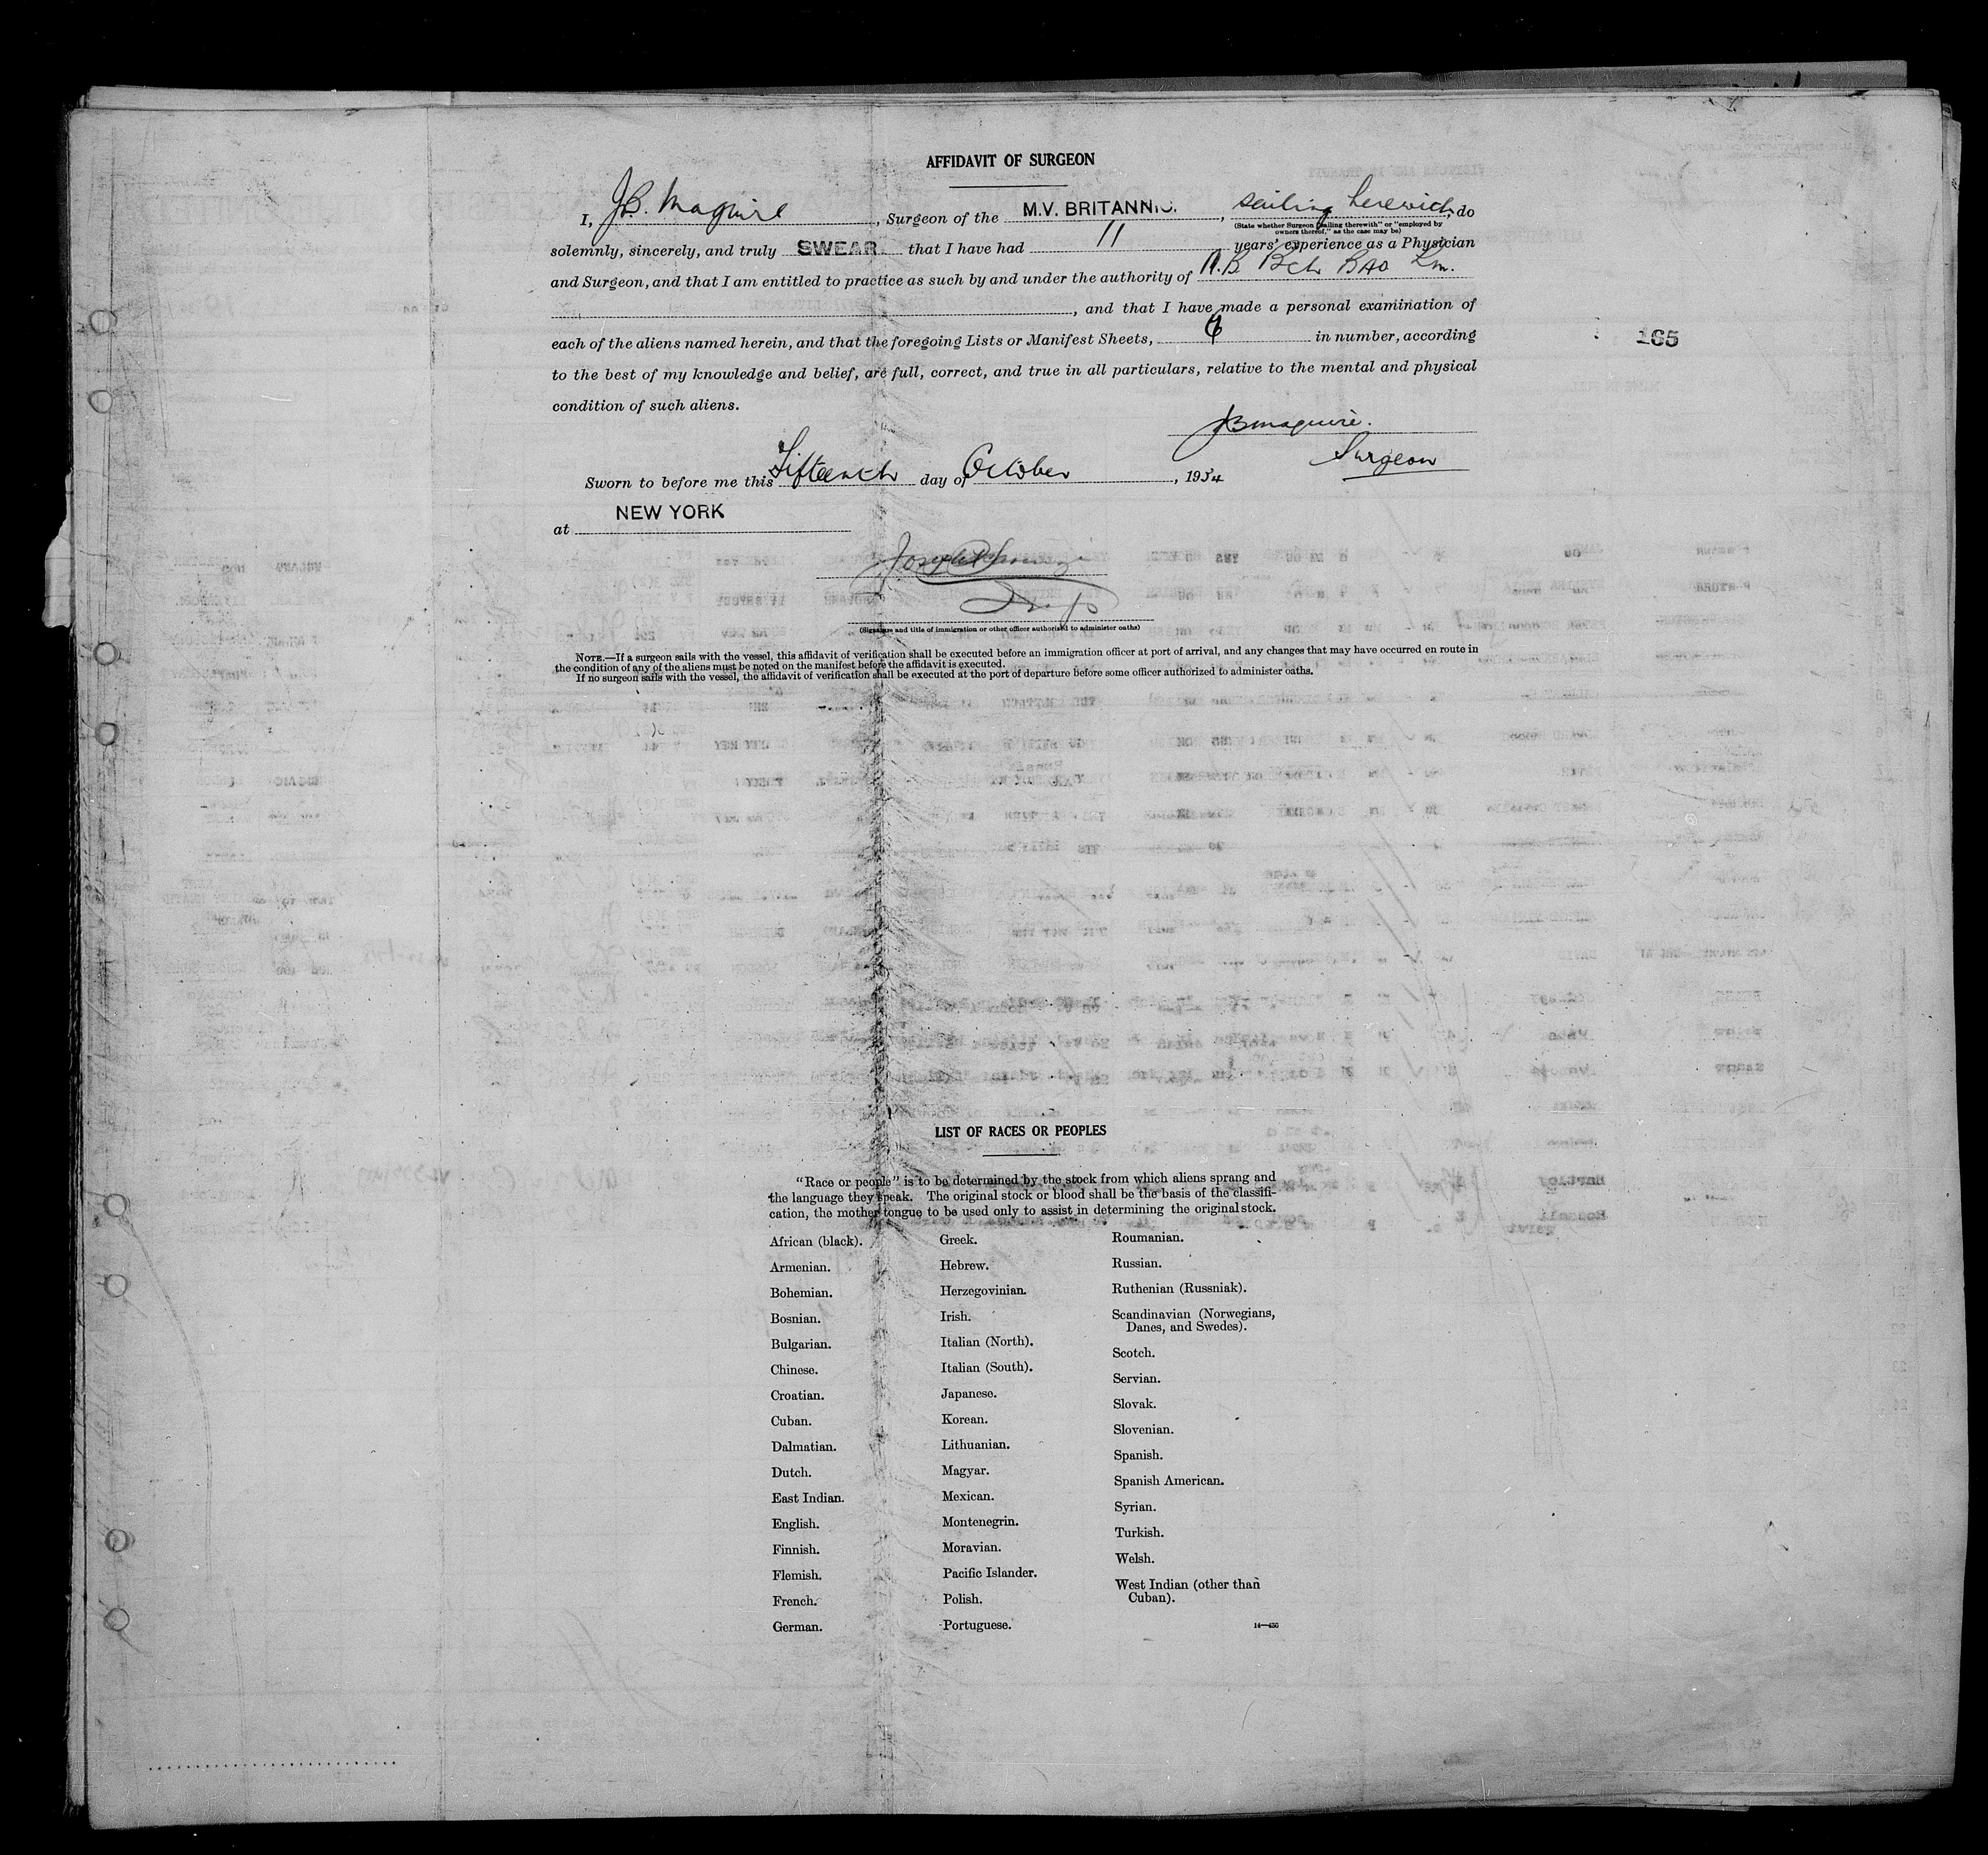 AFFIDAVIT OF SURGEON
I, J.B. Maguire, Surgeon of the M.V. BRITANNIC., sailing herewith, do
(State whether Surgeon "sailing therewith" or "employed by
owners thereof," as the case may be)
solemnly, sincerely, and truly SWEAR that I have had 11 years' experience as a Physician
and Surgeon, and that I am entitled to practice as such by and under the authority of B Bch BAO
, and that I have made a personal examination of
165
each of the aliens named herein, and that the foregoing Lists or Manifest Sheets, in number, according
to the best of my knowledge and belief, are full, correct, and true in all particulars, relative to the mental and physical
condition of such aliens.
JBMaguire.
Surgeon
Sworn to before me this Fifteenth day of October, 1934
at NEW YORK
(Signature and title of immigration or other officer authorized to administer oaths)
NOTE.—If a surgeon sails with the vessel, this affidavit of verification shall be executed before an immigration officer at port of arrival, and any changes that may have occurred en route in
the condition of any of the aliens must be noted on the manifest before the affidavit is executed.
If no surgeon sails with the vessel, the affidavit of verification shall be executed at the port of departure before some officer authorized to administer oaths.
LIST OF RACES OR PEOPLES
"Race or people" is to be determined by the stock from which aliens sprang and
the language they speak. The original stock or blood shall be the basis of the classifi-
cation, the mother tongue to be used only to assist in determining the original stock.
African (black).
Armenian.
Bohemian.
Bosnian.
Bulgarian.
Chinese.
Croatian.
Cuban.
Dalmatian.
Dutch.
East Indian.
English.
Finnish.
Flemish.
French.
German.
Greek.
Hebrew.
Herzegovinian.
Irish.
Italian (North).
Italian (South).
Japanese.
Korean.
Lithuanian.
Magyar.
Mexican.
Montenegrin.
Moravian.
Pacific Islander.
Polish.
Portuguese.
Roumanian.
Russian.
Ruthenian (Russniak).
Scandinavian (Norwegians,
Danes, and Swedes).
Scotch.
Servian.
Slovak.
Slovenian.
Spanish.
Spanish American.
Syrian.
Turkish.
Welsh.
West Indian (other than
Cuban).
14—430